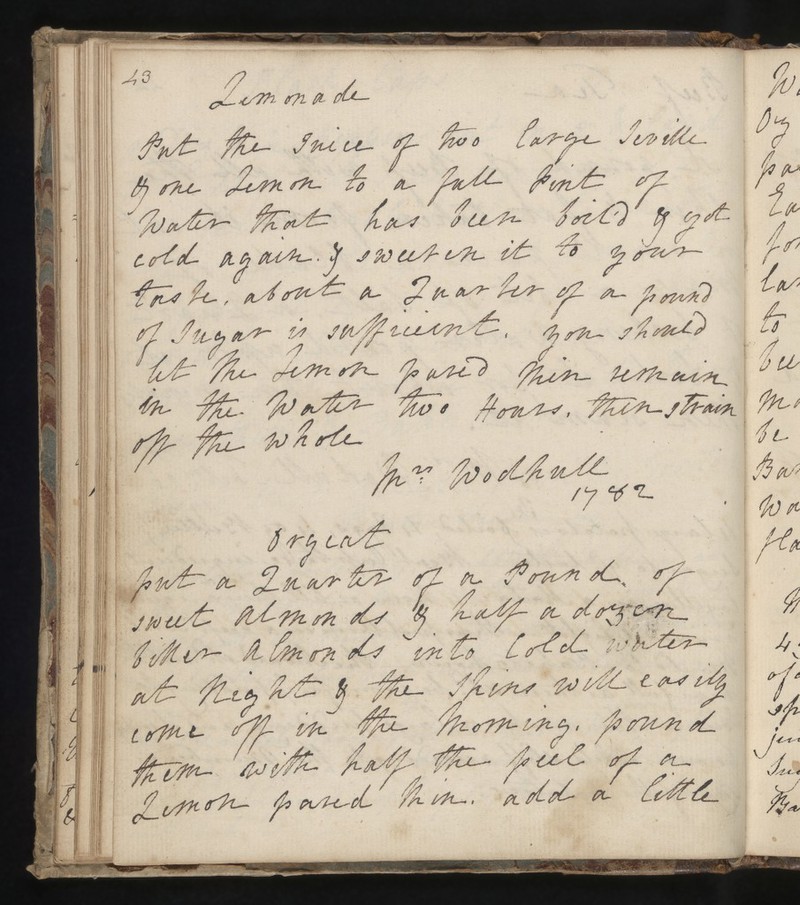 43
Lemonade
Put the Juice of two large Seville
& one Lemon to a full Pint of
Water that has been boil'd & got
cold again. & sweeten it to your
taste. about a Quarter of a pound
of Sugar is sufficient. you should
let the Lemon pared thin remain
in the Water two Hours. then strain
off the whole
Mrs Wodhull
1782
Orgeat
put a Quarter of a Pound. of
sweet Almonds & half a dozen
bitter Almonds into Cold water
at Night & the Skins will easily
come off in the Morning. pound
them with half the peel of a
Lemon pared thin. add a little